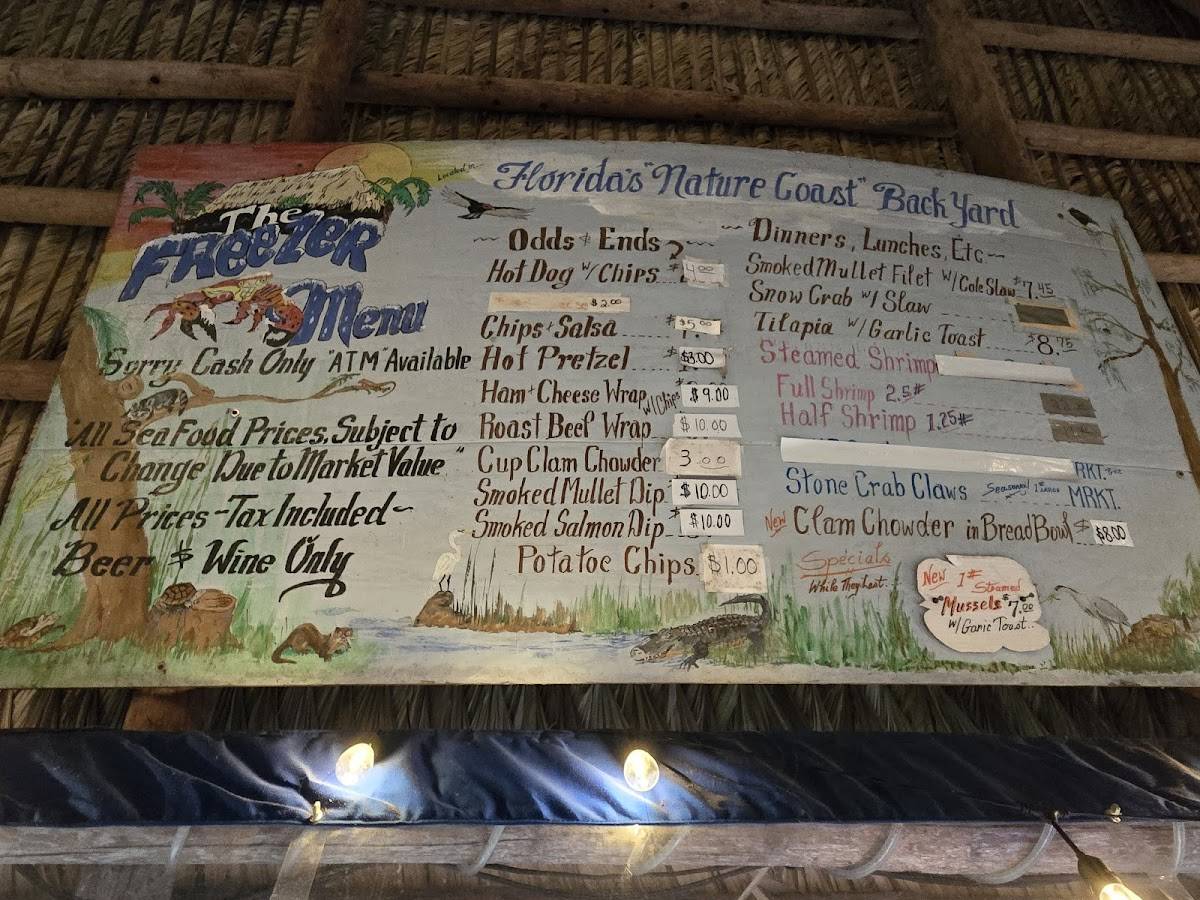 Located in
Florida's "Nature Coast" Back Yard
The
FREEZER
Menu
Sorry Cash Only "ATM" Available
"All SeaFood Prices, Subject to
Change Due to Market Value"
All Prices - Tax Included ~
Beer & Wine Only
~ Odds & Ends ~
Hot Dog w/ Chips $4.00
$2.00
Chips & Salsa $5.00
Hot Pretzel $3.00
Ham & Cheese Wrap w/ Chips $9.00
Roast Beef Wrap $10.00
Cup Clam Chowder 3.00
Smoked Mullet Dip $10.00
Smoked Salmon Dip $10.00
Potatoe Chips $1.00
~ Dinners, Lunches, Etc ~
Smoked Mullet Filet w/ Cole Slaw $7.45
Snow Crab w/ Slaw
Tilapia w/ Garlic Toast $8.75
Steamed Shrimp
Full Shrimp 2.5#
Half Shrimp 1.25#
RKT.
Stone Crab Claws Seasonal MRKT.
New Clam Chowder in Bread Bowl $8.00
Specials
While They Last..
New 1# Steamed
Mussels $7.00
w/ Garlic Toast..